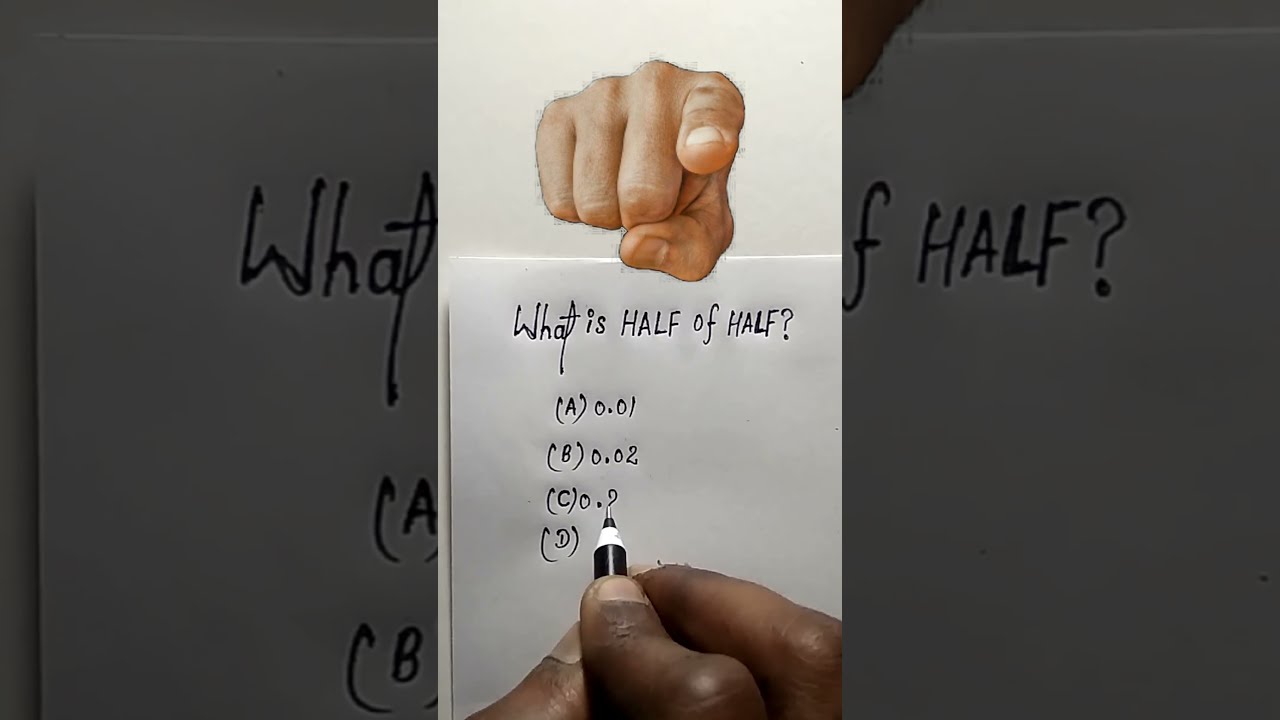 What is HALF of HALF?
(A) 0.01
(B) 0.02
(C) 0.2
(D)